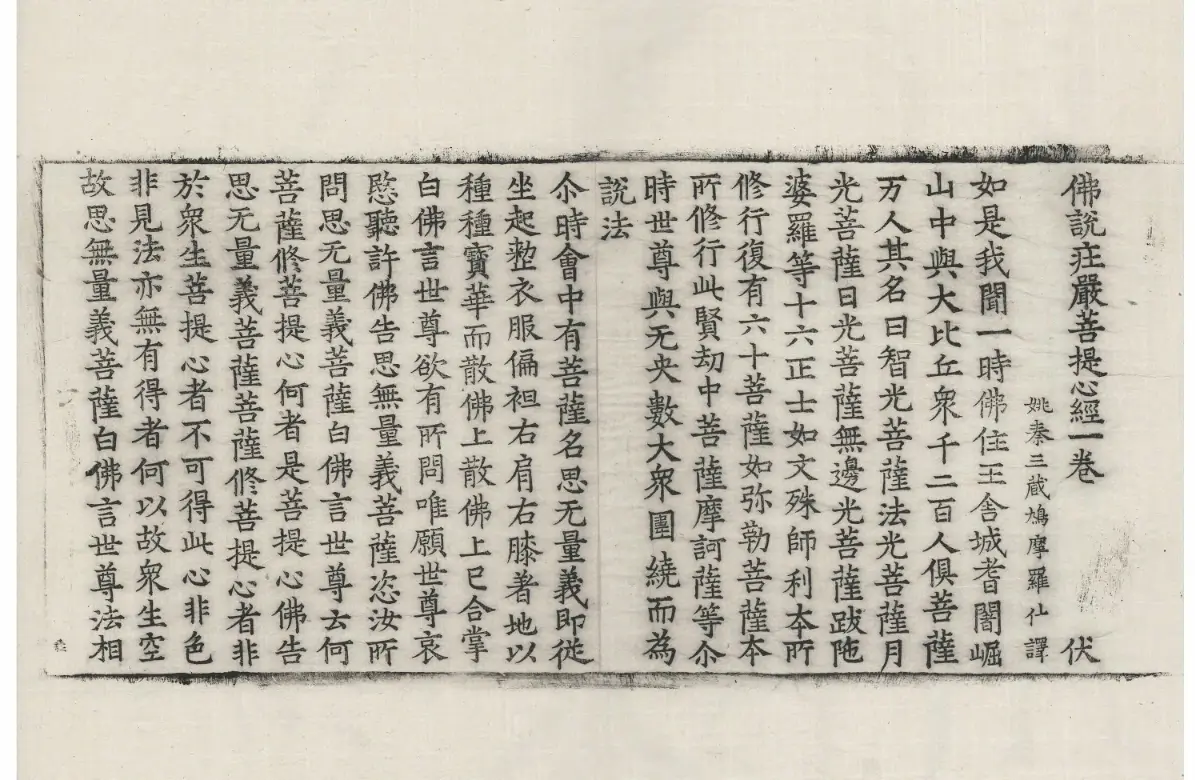 佛說庄嚴菩提心經一卷 伏
姚秦三蔵鳩摩羅什譯
如是我聞一時佛住王舎城耆闍崛
山中與大比丘衆千二百人俱菩薩
万人其名曰智光菩薩法光菩薩月
光菩薩日光菩薩無邊光菩薩跋陁
婆羅等十六正士如文殊師利本所
修行復有六十菩薩如弥勒菩薩本
所修行此賢劫中菩薩摩訶薩等尒
時世尊與无央數大衆圍繞而為
說法
尒時會中有菩薩名思无量義即從
坐起整衣服偏袒右肩右膝著地以
種種寶華而散佛上散佛上已合掌
白佛言世尊欲有所問唯願世尊哀
愍聽許佛告思無量義菩薩恣汝所
問思无量義菩薩白佛言世尊云何
菩薩修菩提心何者是菩提心佛告
思无量義菩薩菩薩修菩提心者非
於衆生菩提心者不可得此心非色
非見法亦無有得者何以故衆生空
故思無量義菩薩白佛言世尊法相